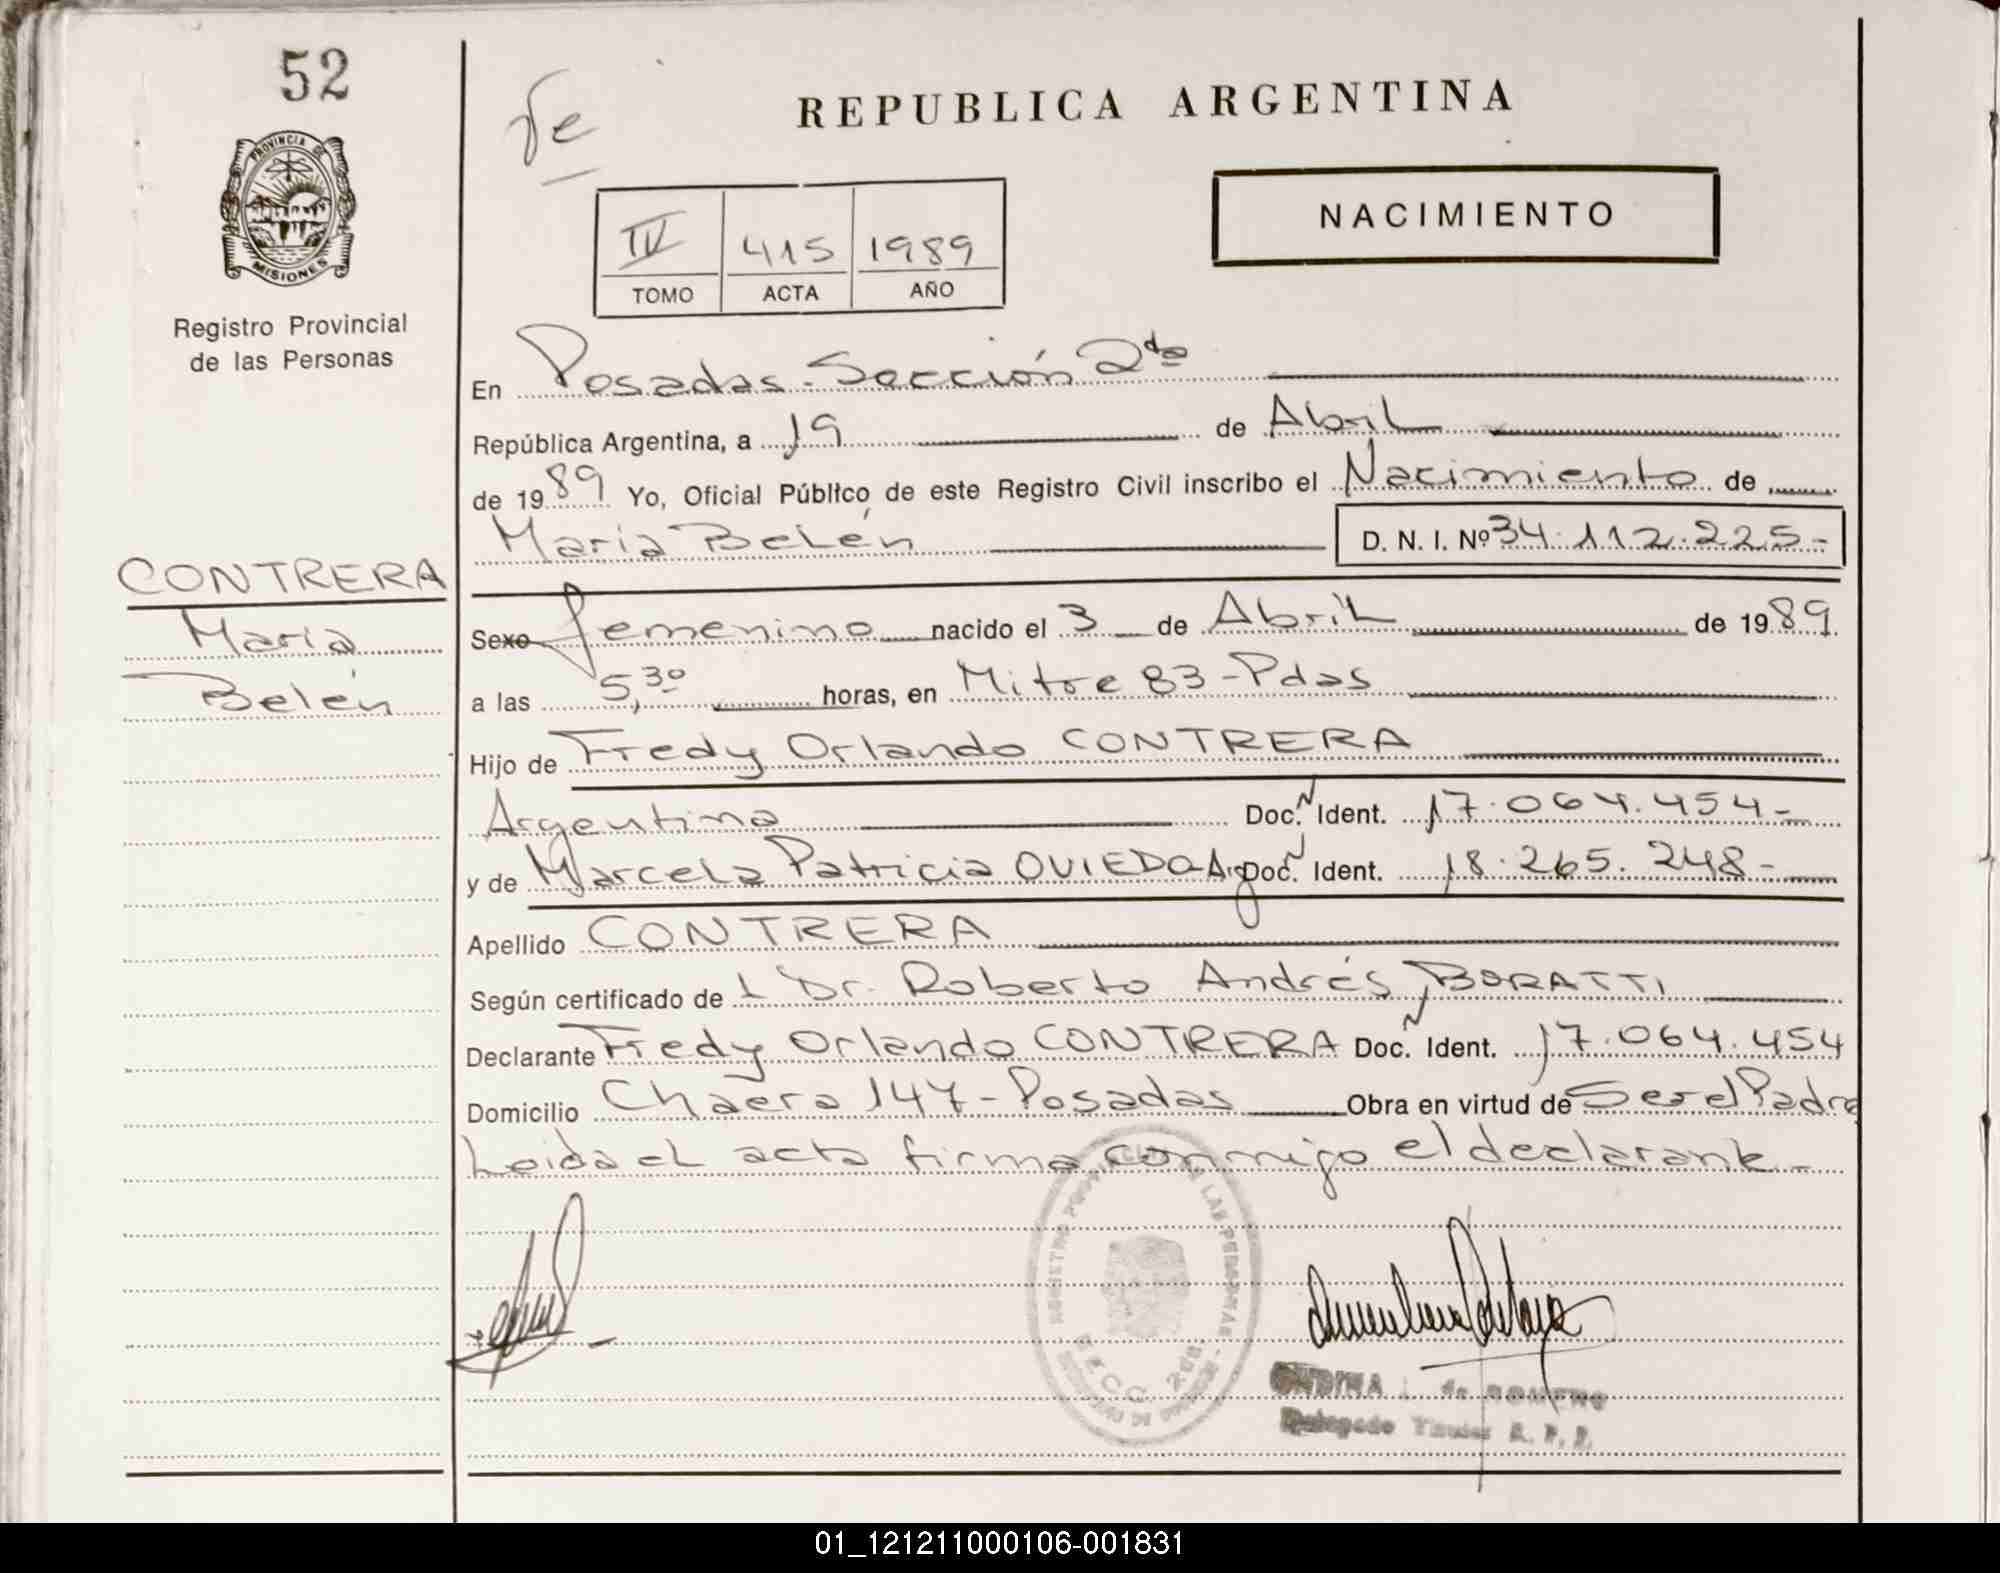 52
Te
REPUBLICA ARGENTINA
PROVINCIA DE
MISIONES
Registro Provincial
de las Personas
NACIMIENTO
IV 415 1989
TOMO ACTA AÑO
En Posadas-Sección 2da
República Argentina, a 19 de Abril
de 1989 Yo, Oficial Público de este Registro Civil inscribo el Nacimiento de
María Belén D. N. I. Nº 34.112.225-
CONTRERA
María
Belén
Sexo femenino nacido el 3 de Abril de 1989
a las 5,30 horas, en Mitre 83-Pdas
Hijo de Fredy Orlando CONTRERA
Argentina Doc. N Ident. 17.064.454-
y de Marcela Patricia OVIEDO Arg Doc. N Ident. 18.265.248-
Apellido CONTRERA
Según certificado de L Dr. Roberto Andrés BORATTI
Declarante Fredy Orlando CONTRERA Doc. N Ident. 17.064.454
Domicilio 147-Posadas Obra en virtud de Ser el Padre
Leida el acta firma conmigo el declarante-
REGISTRO PROVINCIAL DE LAS PERSONAS
ONDINA de ROMERO
Delegado Titular R. P. P.
01_121211000106-001831